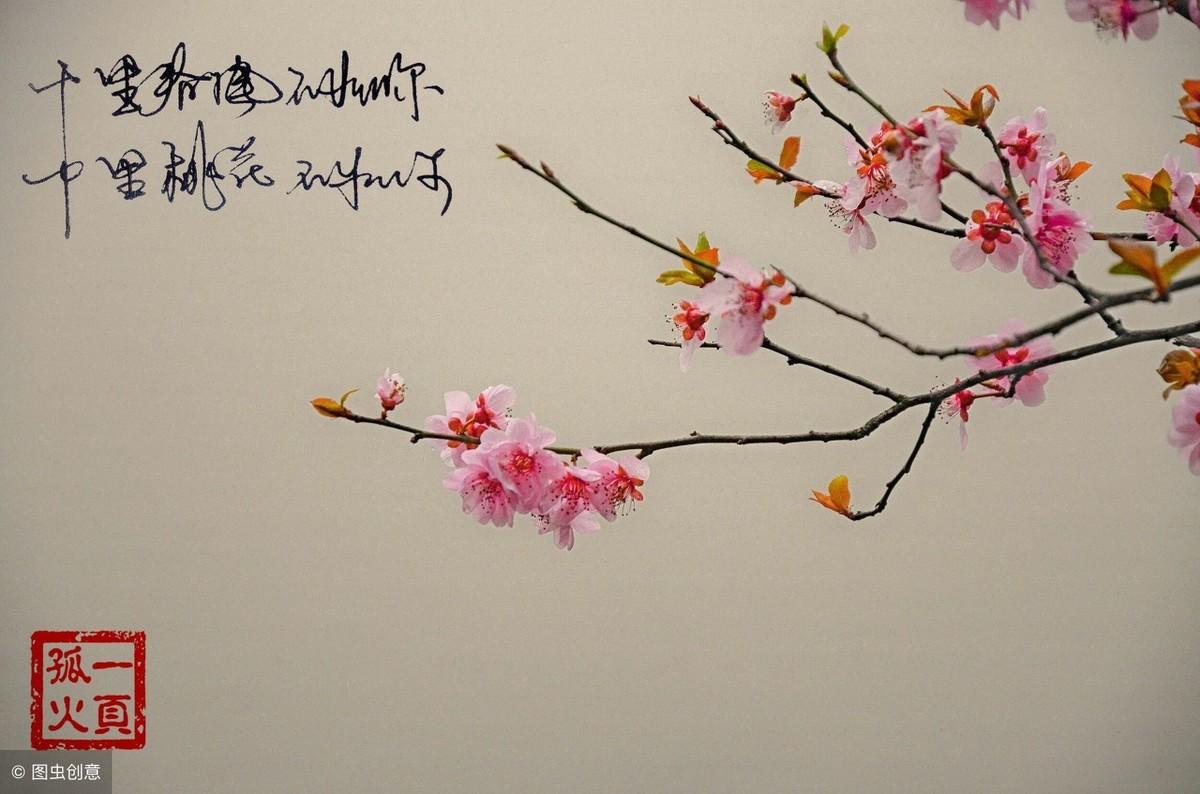 十里不如你
十里桃花不如
一頁
孤火
© 图虫创意